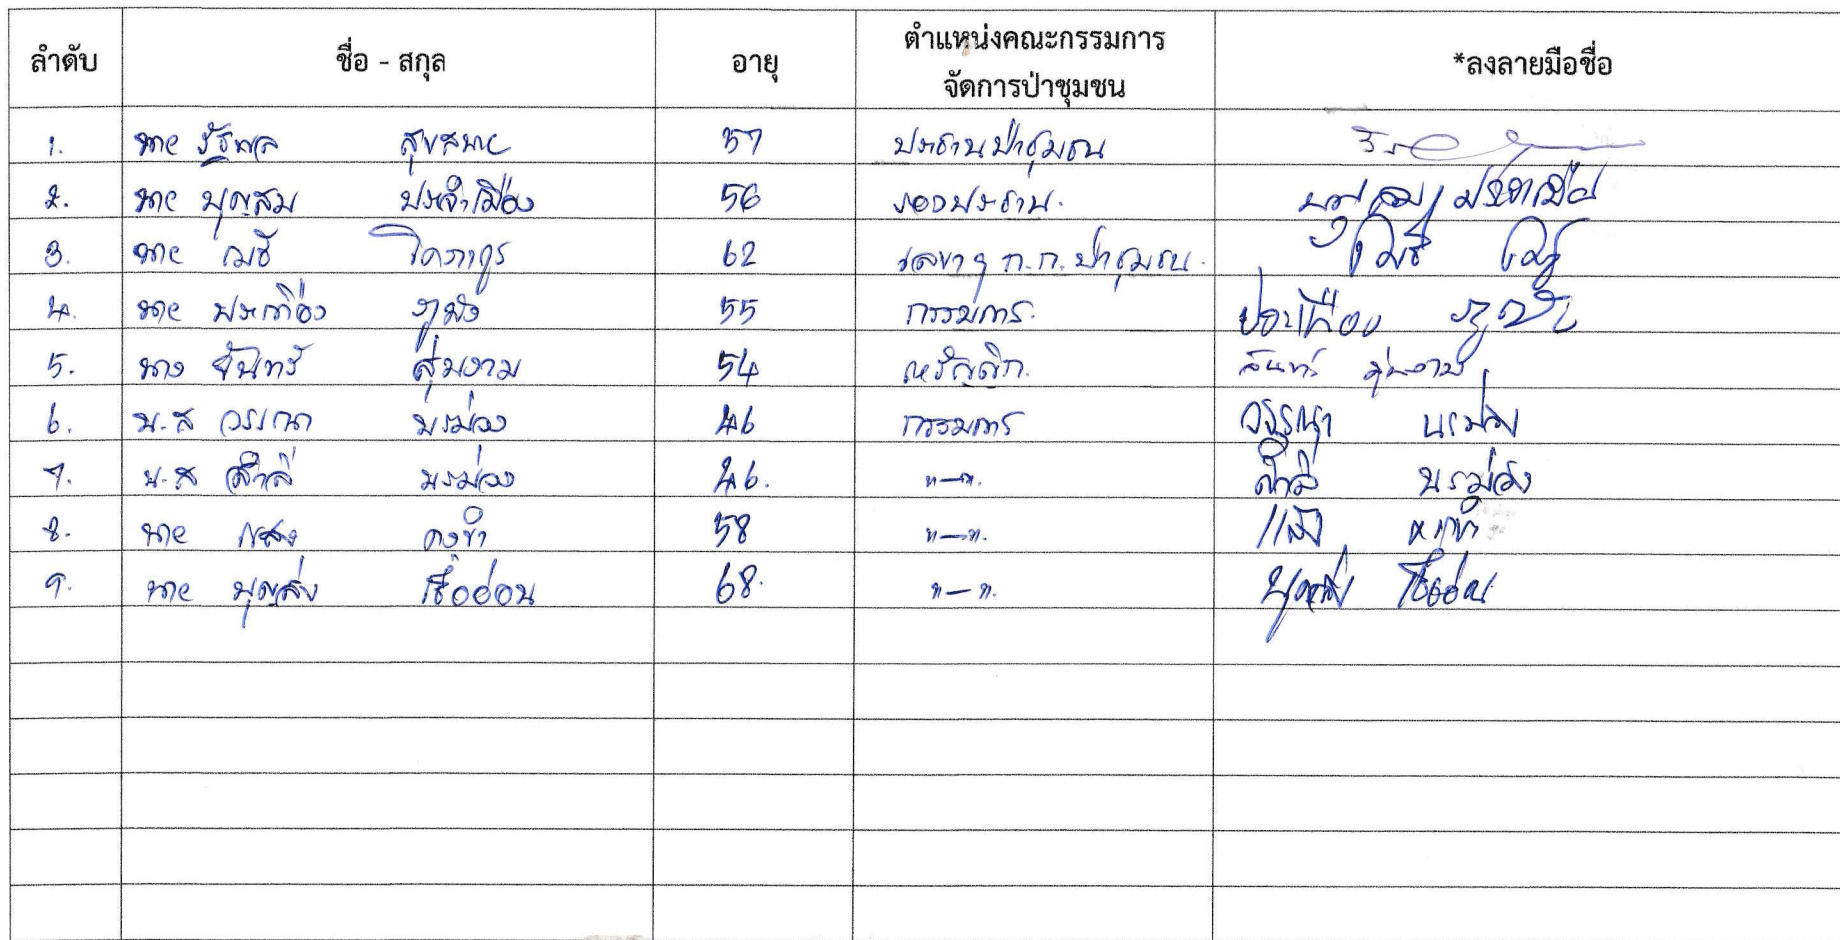 ลำดับ ชื่อ - สกุล อายุ ตำแหน่งคณะกรรมการ *ลงลายมือชื่อ
จัดการป่าชุมชน
1. นาย รัฐพล สุขสบาย 57 ประธานป่าชุมชน
2. นาย บุญสม ประจำเมือง 56 รองประธาน. บุญสม ประจำเมือง
3. นาย เมธี 62 เลขาฯ ก.ก. ป่าชุมชน. เมธี
4. นาย ประเทือง งูผัง 55 กรรมการ. ประเทือง
5. นาง จันทร์ สุ่มงาม 54 เหรัญญิก. จันทร์ สุ่มงาม
6. น.ส วรรณา นรม่วง 46 กรรมการ วรรณา นรม่วง
7. น.ส สำลี นรม่วง 46. "—". สำลี นรม่วง
8. นาย แสง คงขำ 58 "—". แสง
9. นาย บุญส่ง เชื้ออ่อน 68. "—". บุญส่ง เชื้ออ่อน